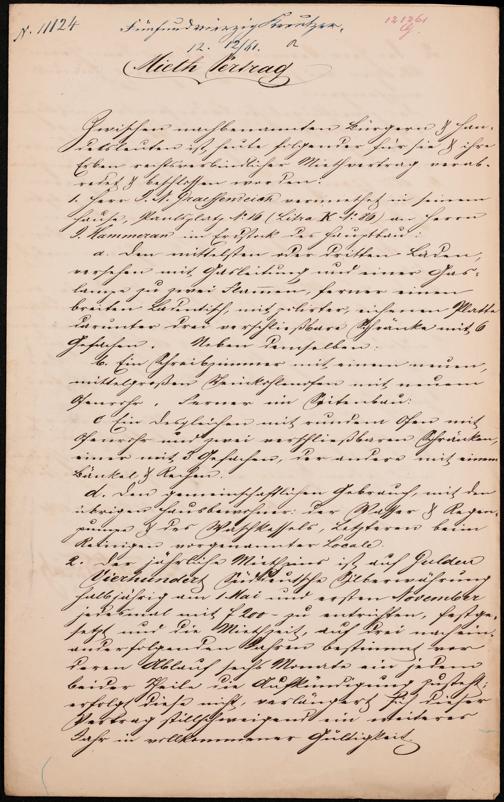 N. 11124 Fünfundvierzig Kreutzer. 121261
12. 12/61.
Mieth Vertrag
Zwischen nachbenannten Bürgern & Han-
delsleuten ist heute folgender für sie & ihre
Erben rechtsverbindlicher Miethvertrag verab-
redet & beschlossen worden:
1. Herr J. A. vermiethet in seinem
Hause, Paulsplatz No 16 (Litra K No ) an Herrn
J. Kammeran im Erdstock des Hauptbau:
a. Den mittelsten oder dritten Laden,
versehen mit Gasleitung und einer Gas-
lampe zu zwei Flammen, ferner einen
breiten Ladentisch, mit polirter, eichener Platte
darunter drei verschließbare Schränke mit 6
Gefachen. Neben demselben:
b. Ein Schreibzimmer mit einem neuen,
mittelgroßen Steinkohlenofen mit neuem
Ofenrohr. Ferner im Seitenbau:
c. Ein desgleichen mit rundem Ofen mit
Ofenrohr und zwei verschließbaren Schränken,
einer mit 8 Gefachen, der andere mit einem
Bänkel & Rechen.
d. Den gemeinschaftlichen Gebrauch, mit den
übrigen Hausbewohner der Wasser & Regen-
pumpe & des Waschkessels, Letzteren beim
Reinigen vorgenannter Locale.
2. Der jährliche Miethzins ist auf Gulden
Vierhundert Süddeutsche Silberwährung
halbjährig am 1 Mai und ersten November
jedesmal mit f 200 – zu entrichten, festge-
setzt und die Miethzeit, auf drei nachein-
anderfolgenden Jahren bestimmt vor
deren Ablauf sechs Monate ein jedem
beider Theile die Aufkündigung zusteht;
erfolgt diese nicht, verlängert sich dieser
Vertrag stillschweigend ein weiteres
Jahr in vollkommener Gültigkeit.